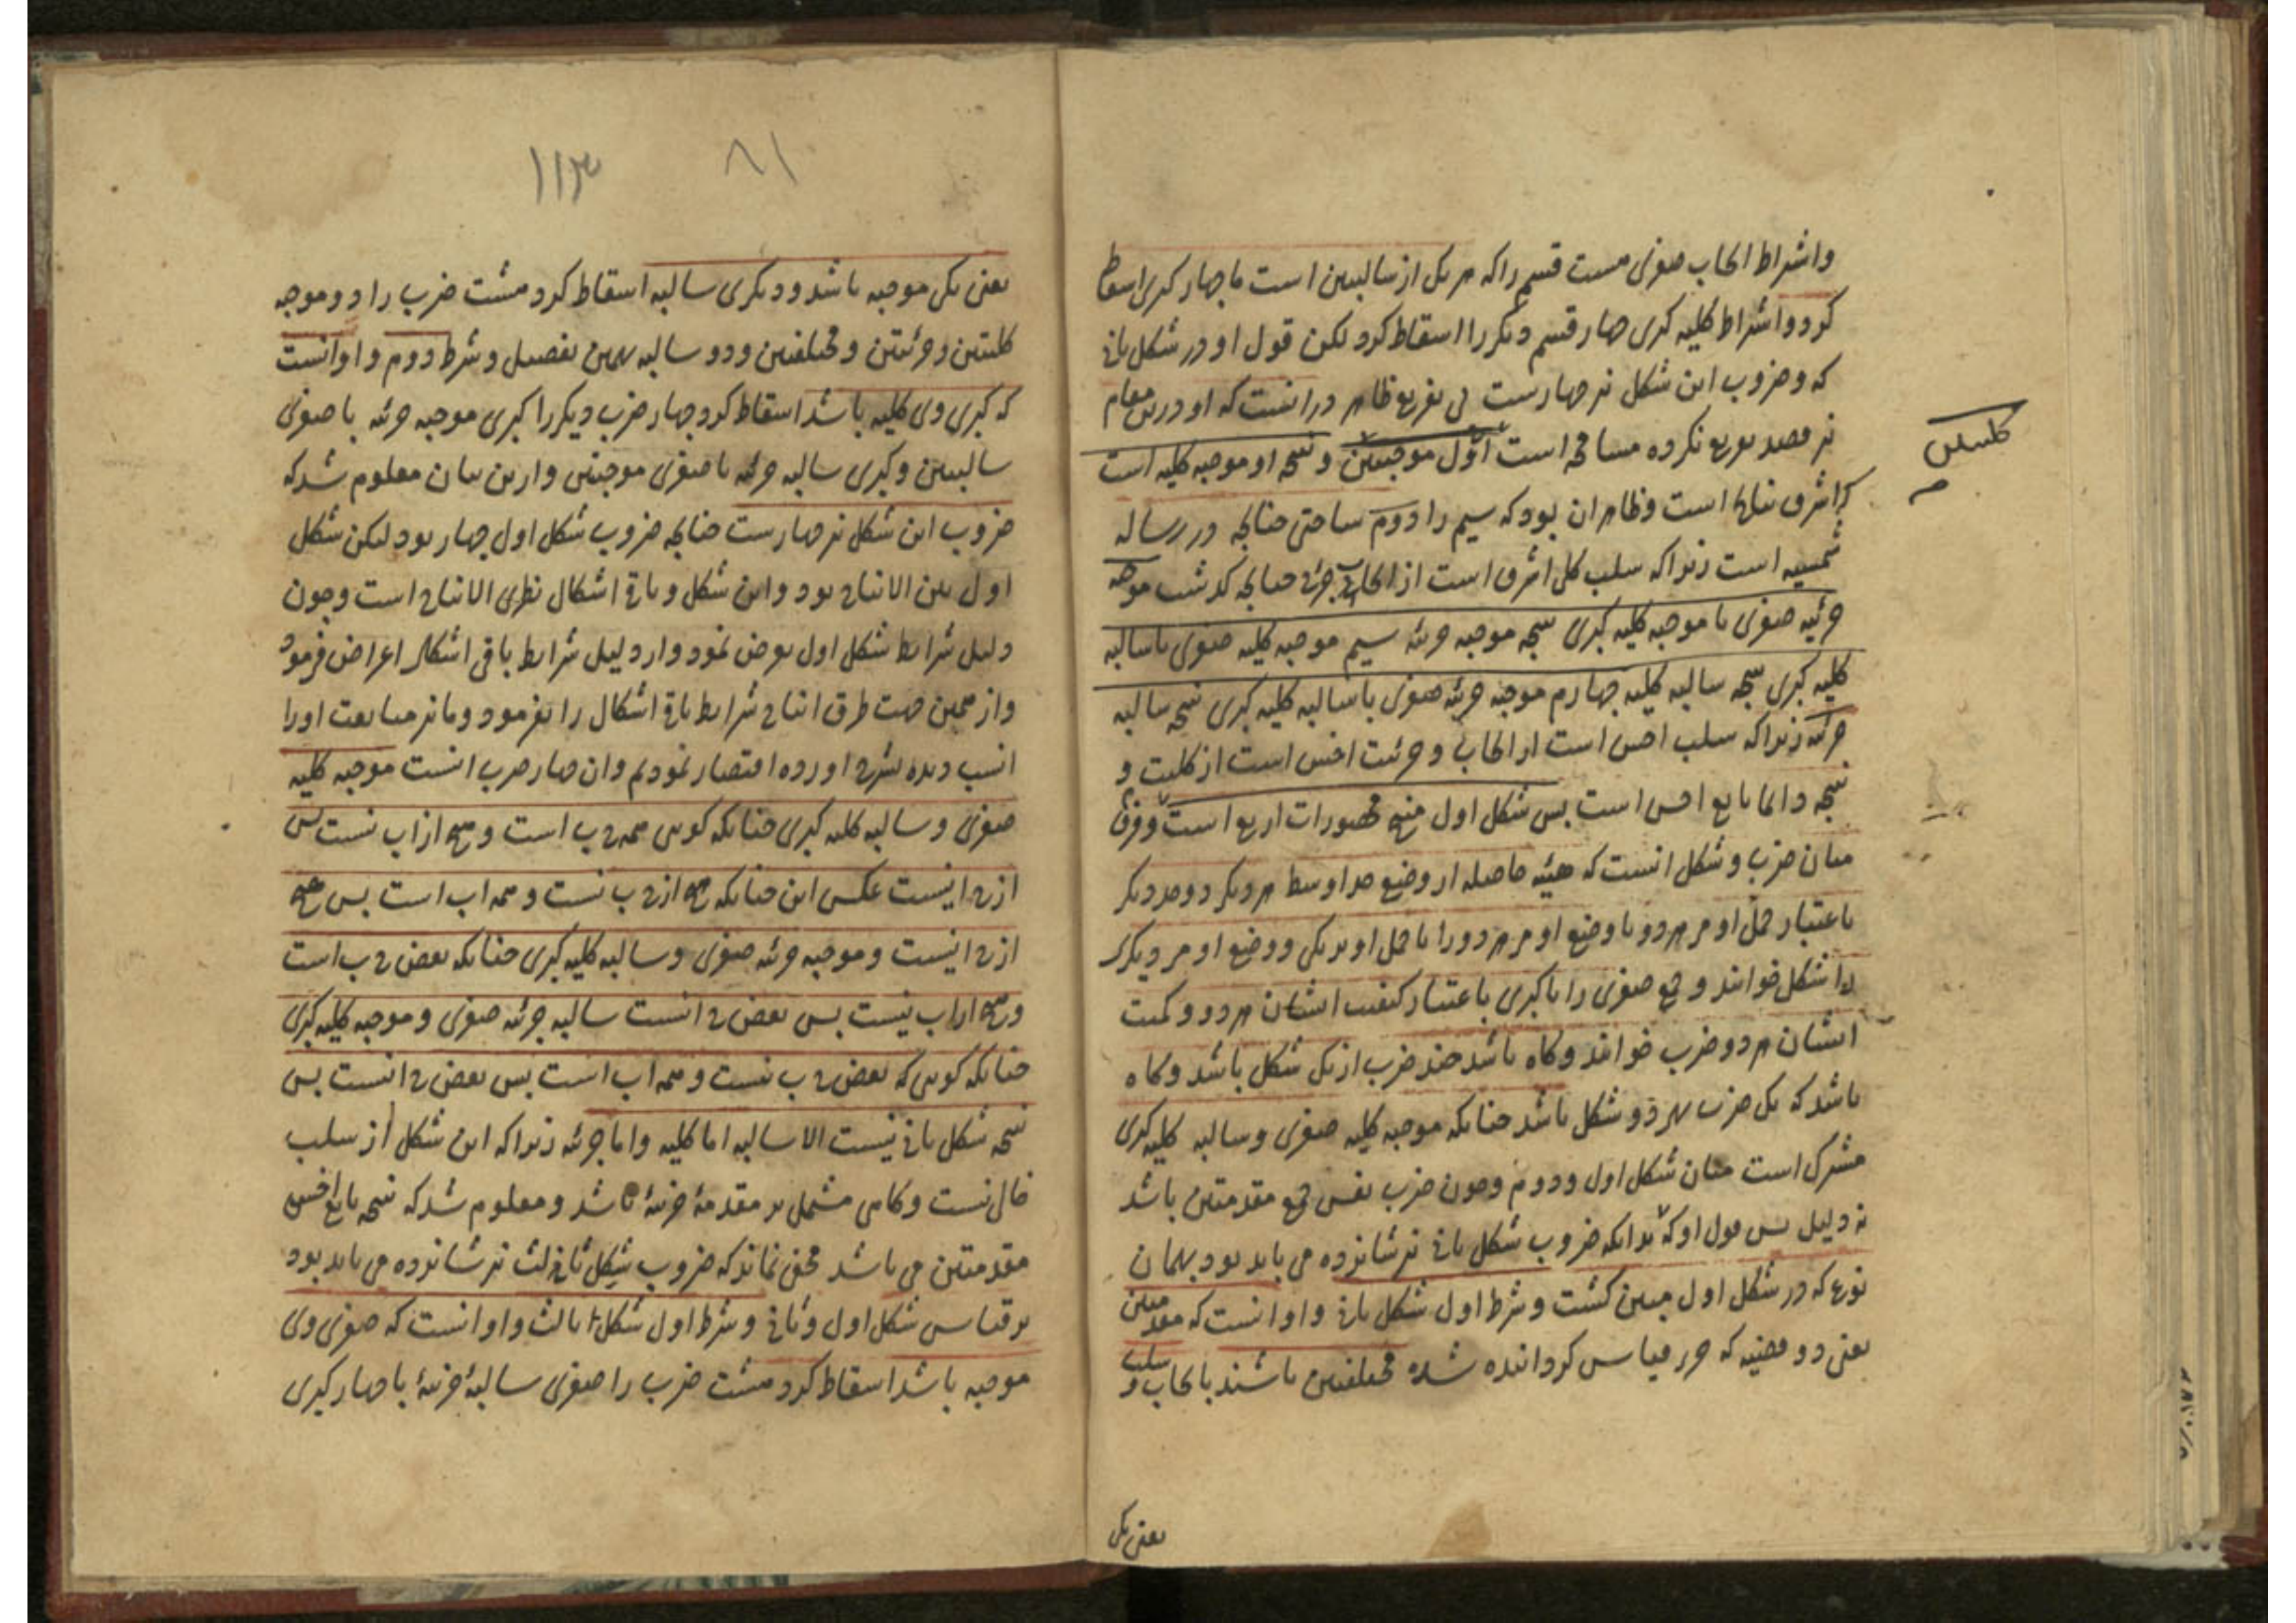 واشراط ایجاب صغری هشت قسم را که هر یک از سالبتین است با چهار کبری اسقاط
کرد و اشراط کلیه کبری چهار قسم دیگر را اسقاط کرد لکن قول او در شکل ثانی
که و ضروب این شکل نیز چهارست بی تفریع ظاهر در انست که او درین مقام
نیز قصد تفریع نکرده مسامحه است اول موجبتین و نتیجه او موجبه کلیه است
کلیتین
که اشرف نتایج است و ظاهر ان بود که سیم را دوم ساختی چنانچه در رساله
شمسیه است زیرا که سلب کل اشرف است از ایجاب جزئی چنانچه گذشت موجبه
جزئیه صغری با موجبه کلیه کبری نتیجه موجبه جزئیه سیم موجبه کلیه صغری با سالبه
کلیه کبری نتیجه سالبه کلیه چهارم موجبه جزئیه صغری با سالبه کلیه کبری نتیجه سالبه
جزئیه زیرا که سلب اخس است از ایجاب و جزئیت اخس است از کلیت و
نتیجه دائما تابع اخس است پس شکل اول منتج محصورات اربع است و فرق
میان ضرب و شکل انست که هیئه حاصله از وضع حد اوسط هر دیگر دو حد دیگر
باعتبار حمل او مر هر دو یا وضع او مر هر دو را یا حمل او بر یکی و وضع او مر دیگر
را شکل خوانند و جمع صغری را با کبری باعتبار کیفیت ایشان هر دو و کمیت
ایشان هر دو ضرب خوانند و گاه باشد چند ضرب از یک شکل باشد و گاه
باشد که یک ضرب بهر دو شکل باشد چنانکه موجبه کلیه صغری و سالبه کلیه کبری
مشترک است میان شکل اول و دوم و چون ضرب نفس جمع مقدمتین باشد
نه دلیل پس قول او که بدانکه ضروب شکل ثانی نیز شانزده می باید بود بهمان
نوع که در شکل اول مبین گشت و شرط اول شکل ثانی و او انست که مقدمتین
یعنی دو قضیه که جزء قیاس گردانیده شده مختلفین باشند بایجاب و سلب
یعنی یکی
۱۱۳ ۸۱
یعنی یکی موجبه باشد و دیگری سالبه اسقاط کرد هشت ضرب را دو موجبه
کلیتین و جزئیتین و مختلفتین و دو سالبه بهمین تفصیل و شرط دوم و او انست
که کبری وی کلیه باشد اسقاط کرد چهار ضرب دیگر را کبری موجبه جزئیه با صغری
سالبتین و کبری سالبه جزئیه با صغری موجبتین و ازین بیان معلوم شد که
ضروب این شکل نیز چهارست چنانچه ضروب شکل اول چهار بود لیکن شکل
اول بین الانتاج بود و این شکل و باقی اشکال نظری الانتاج است و چون
دلیل شرایط شکل اول تعرض ننمود و از دلیل شرایط باقی اشکال اعراض فرمود
و از همین جهت طرق انتاج شرایط باقی اشکال را نفرمود و ما نیز متابعت او را
انسب دیده بشرح اورده اقتصار نمودیم وان چهار ضرب انست موجبه کلیه
صغری و سالبه کلیه کبری چنانکه گویی همه ج ب است و هیچ از اب نیست پس
هیچ از ج ا نیست عکس این چنانکه هیچ از ج ب نیست و همه اب است پس هیچ
از ج ا نیست و موجبه جزئیه صغری و سالبه کلیه کبری چنانکه بعض ج ب است
و هیچ از اب نیست پس بعض ج ا نیست سالبه جزئیه صغری و موجبه کلیه کبری
چنانکه گویی که بعض ج ب نیست و همه اب است پس بعض ج ا نیست پس
نتیجه شکل ثانی نیست الا سالبه اما کلیه و اما جزئیه زیرا که این شکل از سلب
خالی نیست و گاهی مشتمل بر مقدمهٔ جزئیهٔ باشد و معلوم شد که نتیجه تابع اخس
مقدمتین می باشد مخفی نماند که ضروب شکل ثالث نیز شانزده می باید بود
بر قیاس شکل اول و ثانی و شرط اول شکل ثالث و او انست که صغری وی
موجبه باشد اسقاط کرد هشت ضرب را صغری سالبهٔ جزئیهٔ با چهار کبری